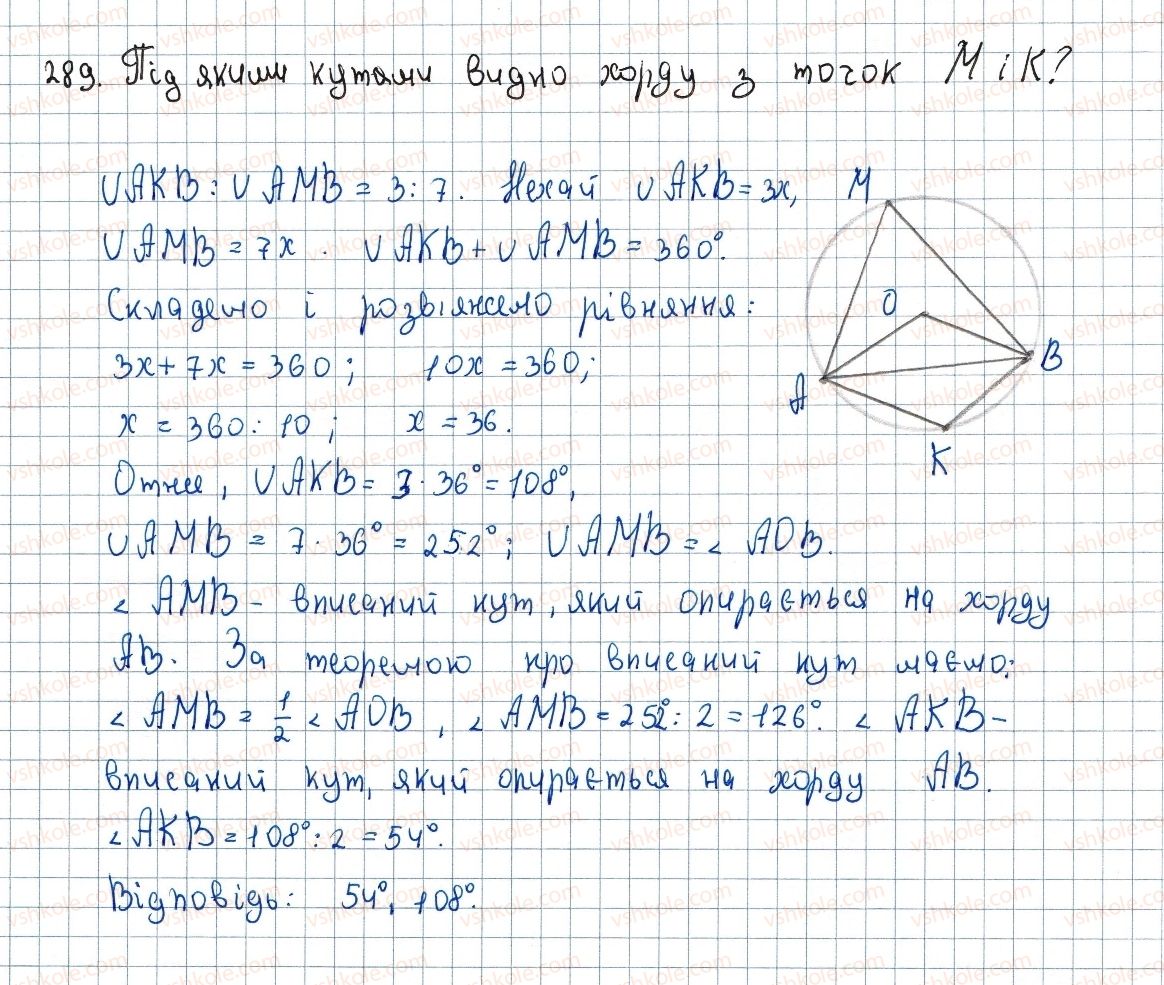 289. Під якими кутами видно хорду з точок M і K?
∪AKB : ∪AMB = 3 : 7. Нехай ∪AKB = 3x, M
∪AMB = 7x. ∪AKB + ∪AMB = 360°.
Складемо і розв'яжемо рівняння: O
3x + 7x = 360; 10x = 360; B
x = 360 : 10; x = 36. A
Отже, ∪AKB = 3 · 36° = 108°, K
∪AMB = 7 · 36° = 252°; ∪AMB = ∠ AOB.
∠ AMB – вписаний кут, який опирається на хорду
AB. За теоремою про вписаний кут маємо:
∠ AMB = 1/2 ∠ AOB, ∠ AMB = 252° : 2 = 126°. ∠ AKB –
вписаний кут, який опирається на хорду AB.
∠ AKB = 108° : 2 = 54°.
Відповідь: 54°, 108°.
vshkole.com